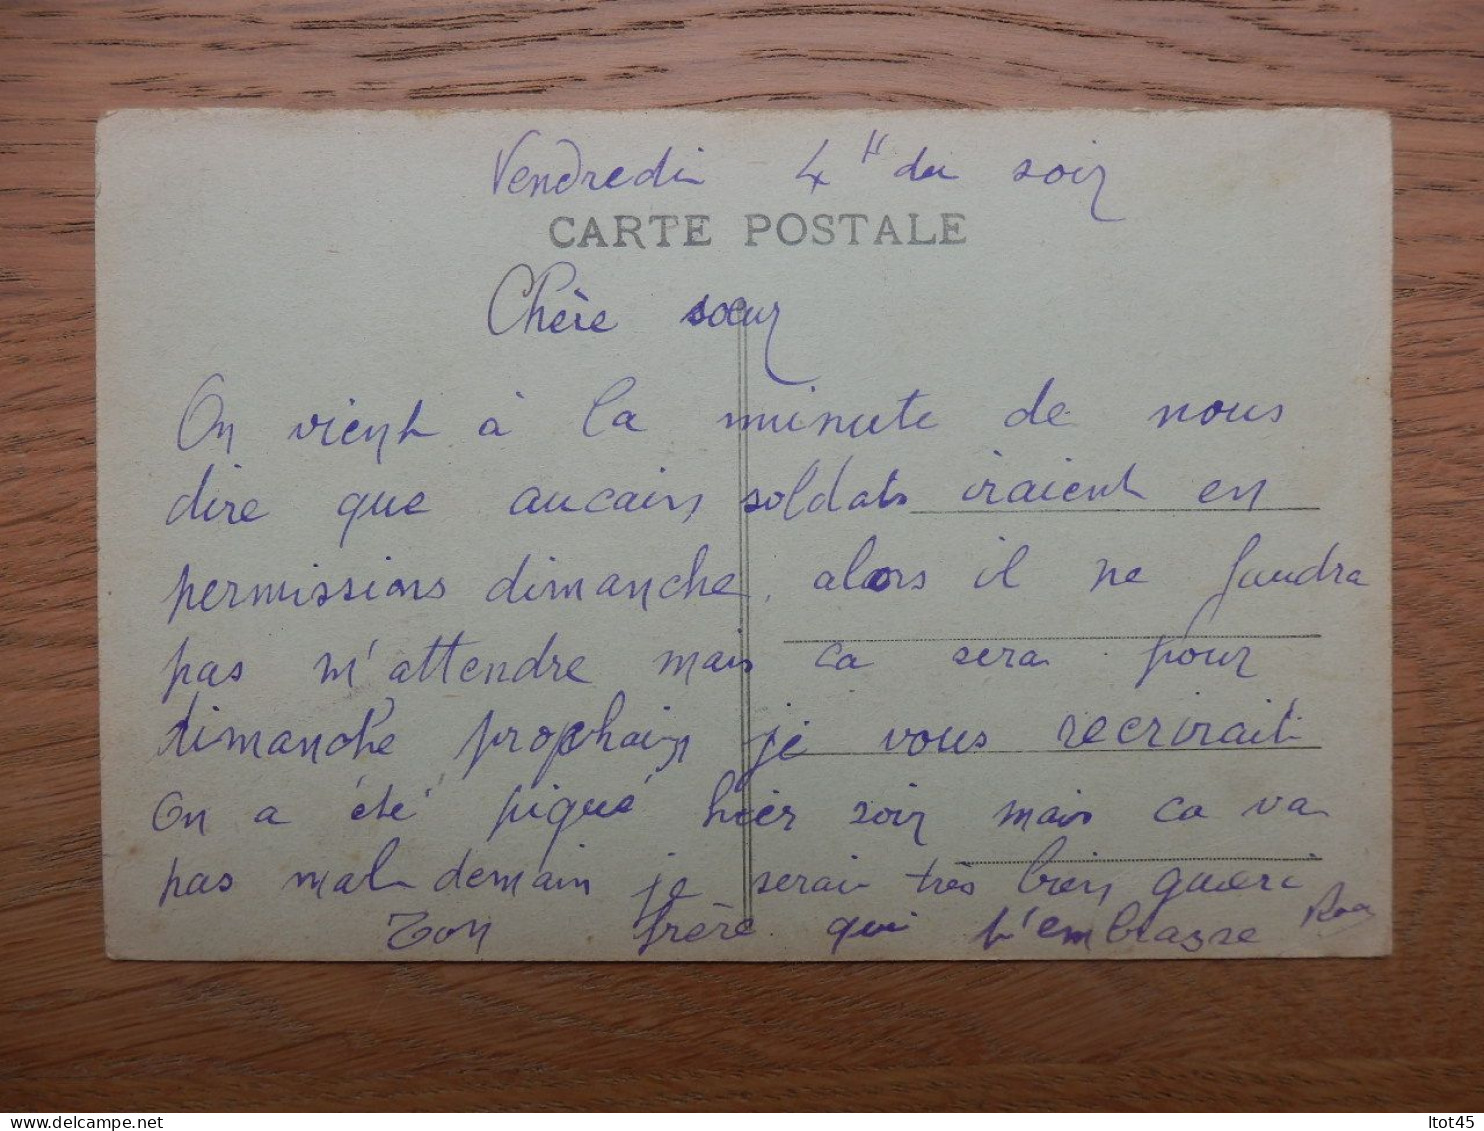 Vendredi 4 H du soir
CARTE POSTALE
Chère sœur
On vient à la minute de nous
dire que aucain soldats iraient en
permissions dimanche, alors il ne faudra
pas m'attendre mais ca sera pour
dimanche prophain je vous recrirait
On a été piqué hier soir mais ca va
pas mal demain je serai très bien gueri
Ton frère qui t'embrasse
ltot45